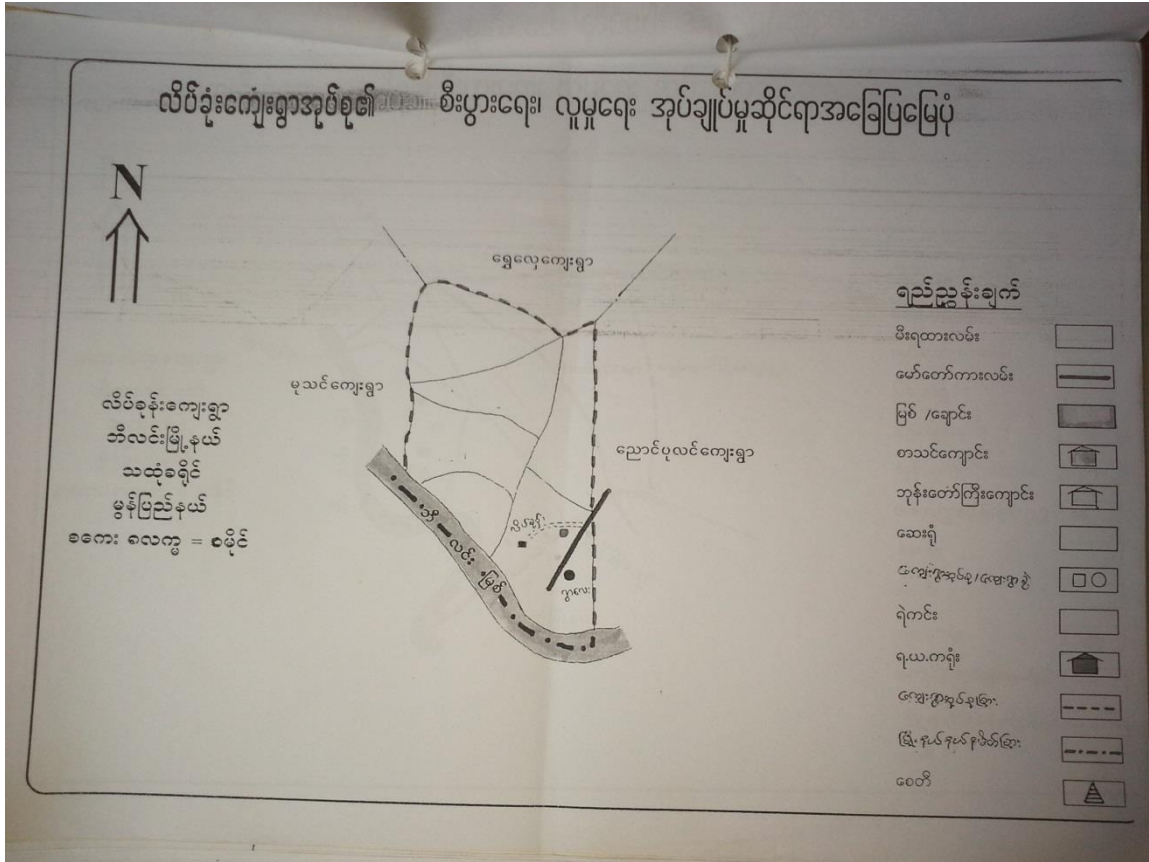 လိပ်ခုံးကျေးရွာအုပ်စု၏ စီးပွားရေး၊ လူမှုရေး အုပ်ချုပ်မှုဆိုင်ရာအခြေပြမြေပုံ
N
ရွှေလှေကျေးရွာ
မုသင်ကျေးရွာ
လိပ်ခုန်းကျေးရွာ
ဘီလင်းမြို့နယ်
သထုံခရိုင်
မွန်ပြည်နယ်
စကေး ၈လက္မ = ၁မိုင်
ညောင်ပုလင်ကျေးရွာ
လိပ်ခုန်း
ရွာလေး
ဘီလင်းမြစ်
ရည်ညွှန်းချက်
မီးရထားလမ်း
မော်တော်ကားလမ်း
မြစ် /ချောင်း
စာသင်ကျောင်း
ဘုန်းတော်ကြီးကျောင်း
ဆေးရုံ
ကျေးရွာအုပ်စု/ကျေးရွာ
ရဲကင်း
ရ.ယ.ကရုံး
ကျေးရွာအုပ်စုခြား
မြို့နယ်နယ်နိမိတ်ခြား
စေတီ